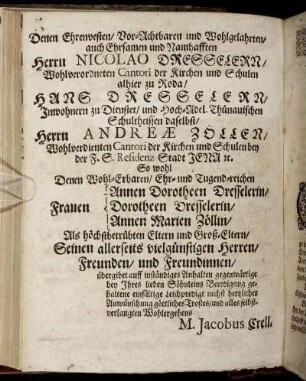 Denen Ehrenvesten/ Vor-Achtbaren und Wohlgelahrten/
auch Ehrsamen und Namhafften
Herrn NICOLAO DRESSELERN/
Wohlverordneten Cantori der Kirchen und Schulen
alhier zu Roda/
HANS DRESSELERN/
Inwohnern zu Dienstet/ und Hoch-Adel. Thünauischen
Schultheissen daselbst/
Herrn ANDREÆ ZÖLLEN/
Wohlverdienten Cantori der Kirchen und Schulen bey
der F. S. Residenz Stadt JENA ꝛc.
So wohl
Denen Wohl-Erbaren/ Ehr- und Tugendreichen
Annen Dorotheen Dresselerin/
Frauen Dorotheen Dresselerin/
Annen Marien Zöllin/
Als höchstbetrübten Eltern und Groß-Eltern/
Seinen allerseits vielgünstigen Herren/
Freunden/ und Freundinnen/
übergibet auff inständiges Anhalten gegenwärtige
bey Ihres lieben Söhnleins Beerdigung ge-
haltene einfältige Leichpredigt nechst hertzlicher
Anwünschung göttliches Trostes/ und alles selbst-
verlangten Wohlergehens
M. Jacobus Crell.